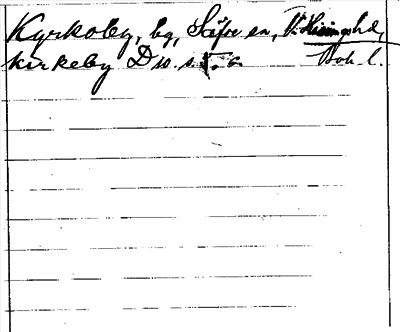 Kyrkoby, bg, Säfve sn, V. Hisings hd,
kirkeby D w. s. Boh. l.